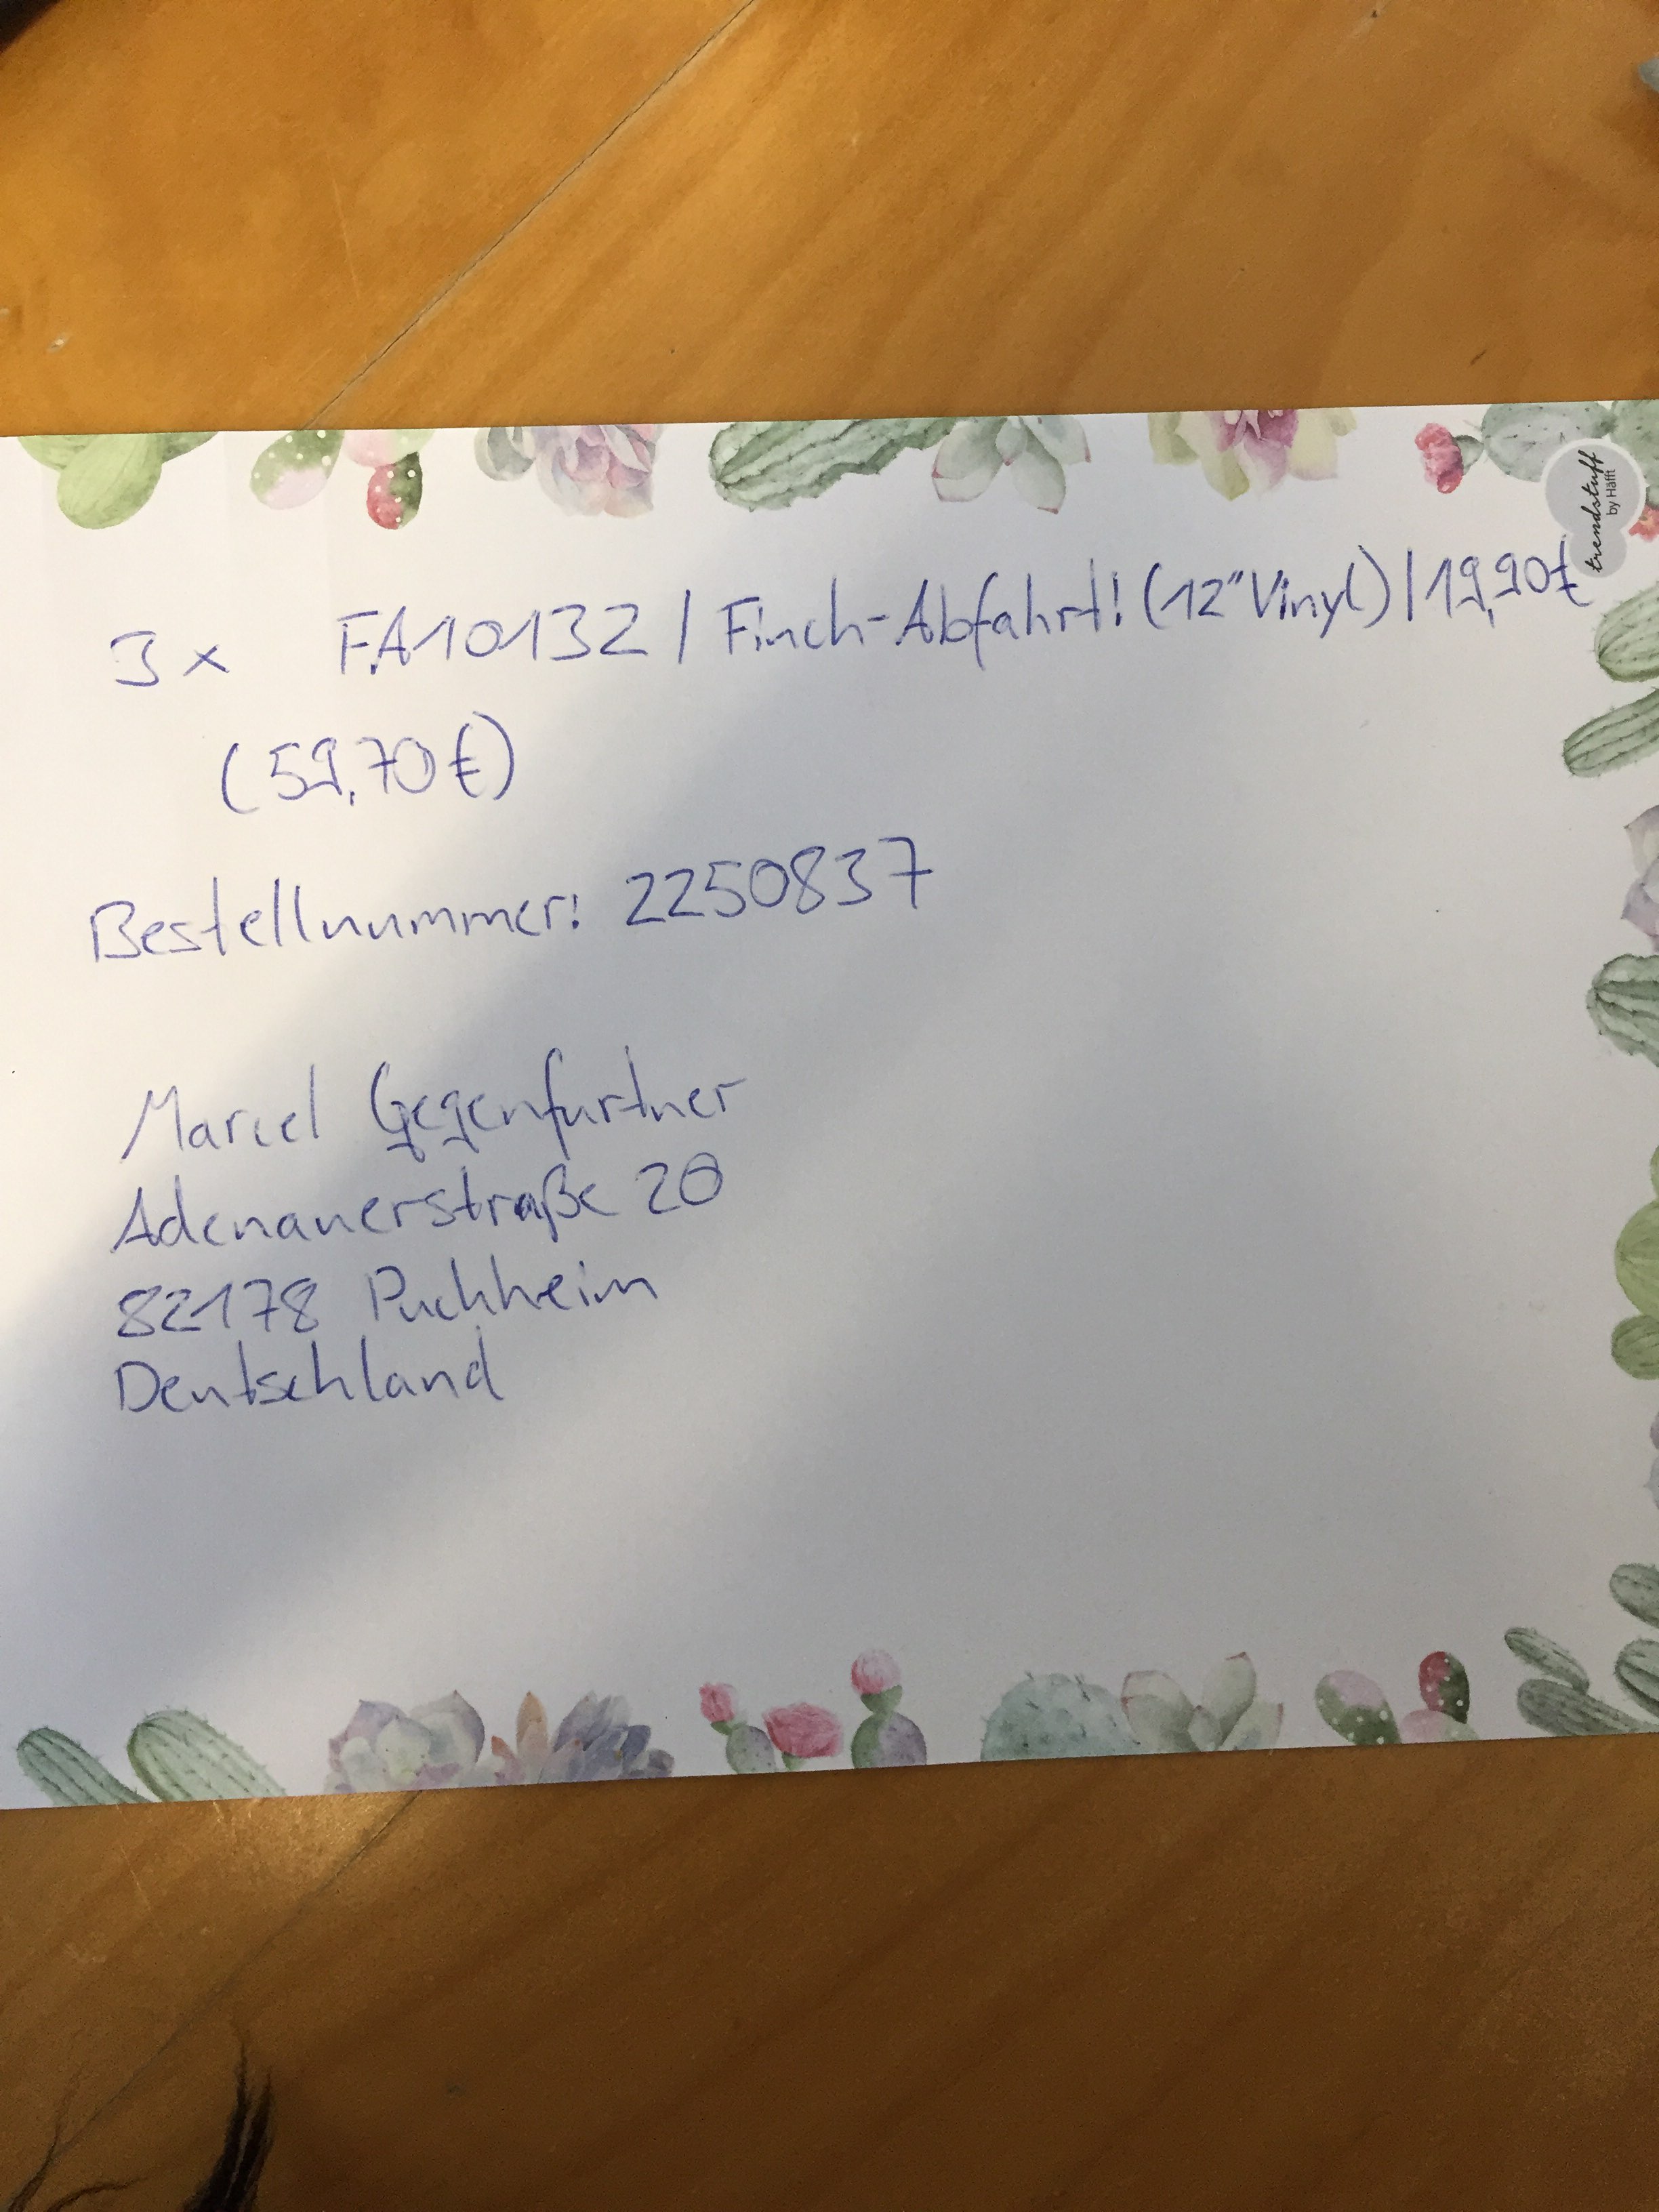 trendstuff
by Häfft
3x FA10132 / Finch-Abfahrt! (12" Vinyl) | 19,90€
(59,70€)
Bestellnummer: 2250837
Marcel Gegenfurtner
Adenauerstraße 20
82178 Puchheim
Deutschland